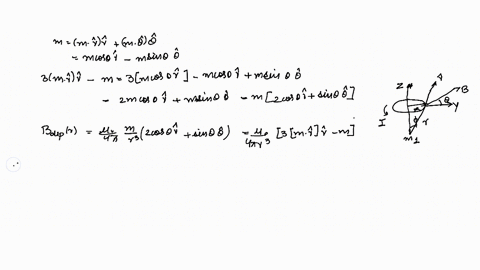 m = (m·r̂)r̂ + (m·θ̂)θ̂
= mcosθ r̂ - msinθ θ̂
3(m·r̂)r̂ - m = 3[mcosθ r̂] - mcosθ r̂ + msinθ θ̂
= 2mcosθ r̂ + msinθ θ̂ = m[2cosθ r̂ + sinθ θ̂]
Bdip(r) = μ₀/4π m/r³ (2cosθ r̂ + sinθ θ̂) = μ/4πr³ [3[m·r̂]r̂ - m]
Z
A
B
θ
Y
I
r
m1